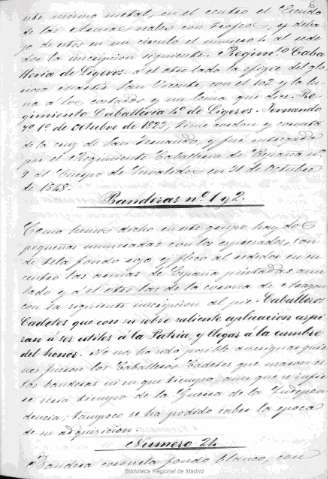 mismo metal, en el centro el Escudo
de las Armas reales con trofeos, y deba-
jo de este en un círculo el numero 4, al rede-
dor la inscripcion siguiente: Regim.to Caba-
lleria de Ligeros. á el otro lado la efigie del glo-
rioso San Vicente con el sol y la lu-
na á los costados y un lema que dice: Re-
gimiento Caballeria 4º de Ligeros. Fernando
7º 1º de Octubre de 1823, tiene cordon y corbata
de la cruz de San Fernando, y fué entregado
por el Regimiento Caballeria de España nº
al Cuerpo de Invalidos en 21 de Octubre
de 1848.
Banderas n.º 1 y 2.
Como hemos dicho en este grupo, hay dos
pequeñas numeradas con las expresadas, son
de tela fondo rojo y fleco al rededor en su
centro las armas de España pintadas á un
lado y á el otro las de la corona de Aragon
con la siguiente inscripcion al pie: Caballeros
Cadetes que con su sobre saliente aplicacion aspi-
ran á ser utiles á la Patria, y llegar á la cumbre
del honor. No ha sido posible averiguar quie-
nes fueron los Caballeros Cadetes que
las banderas ni en que tiempo,
sea tiempo de la Guerra de la Indepen-
dencia; tampoco se ha podido saber la epoca
de su adquisicion.
Numero 24.
Bandera fondo blanco, con
Biblioteca Regional de Madrid